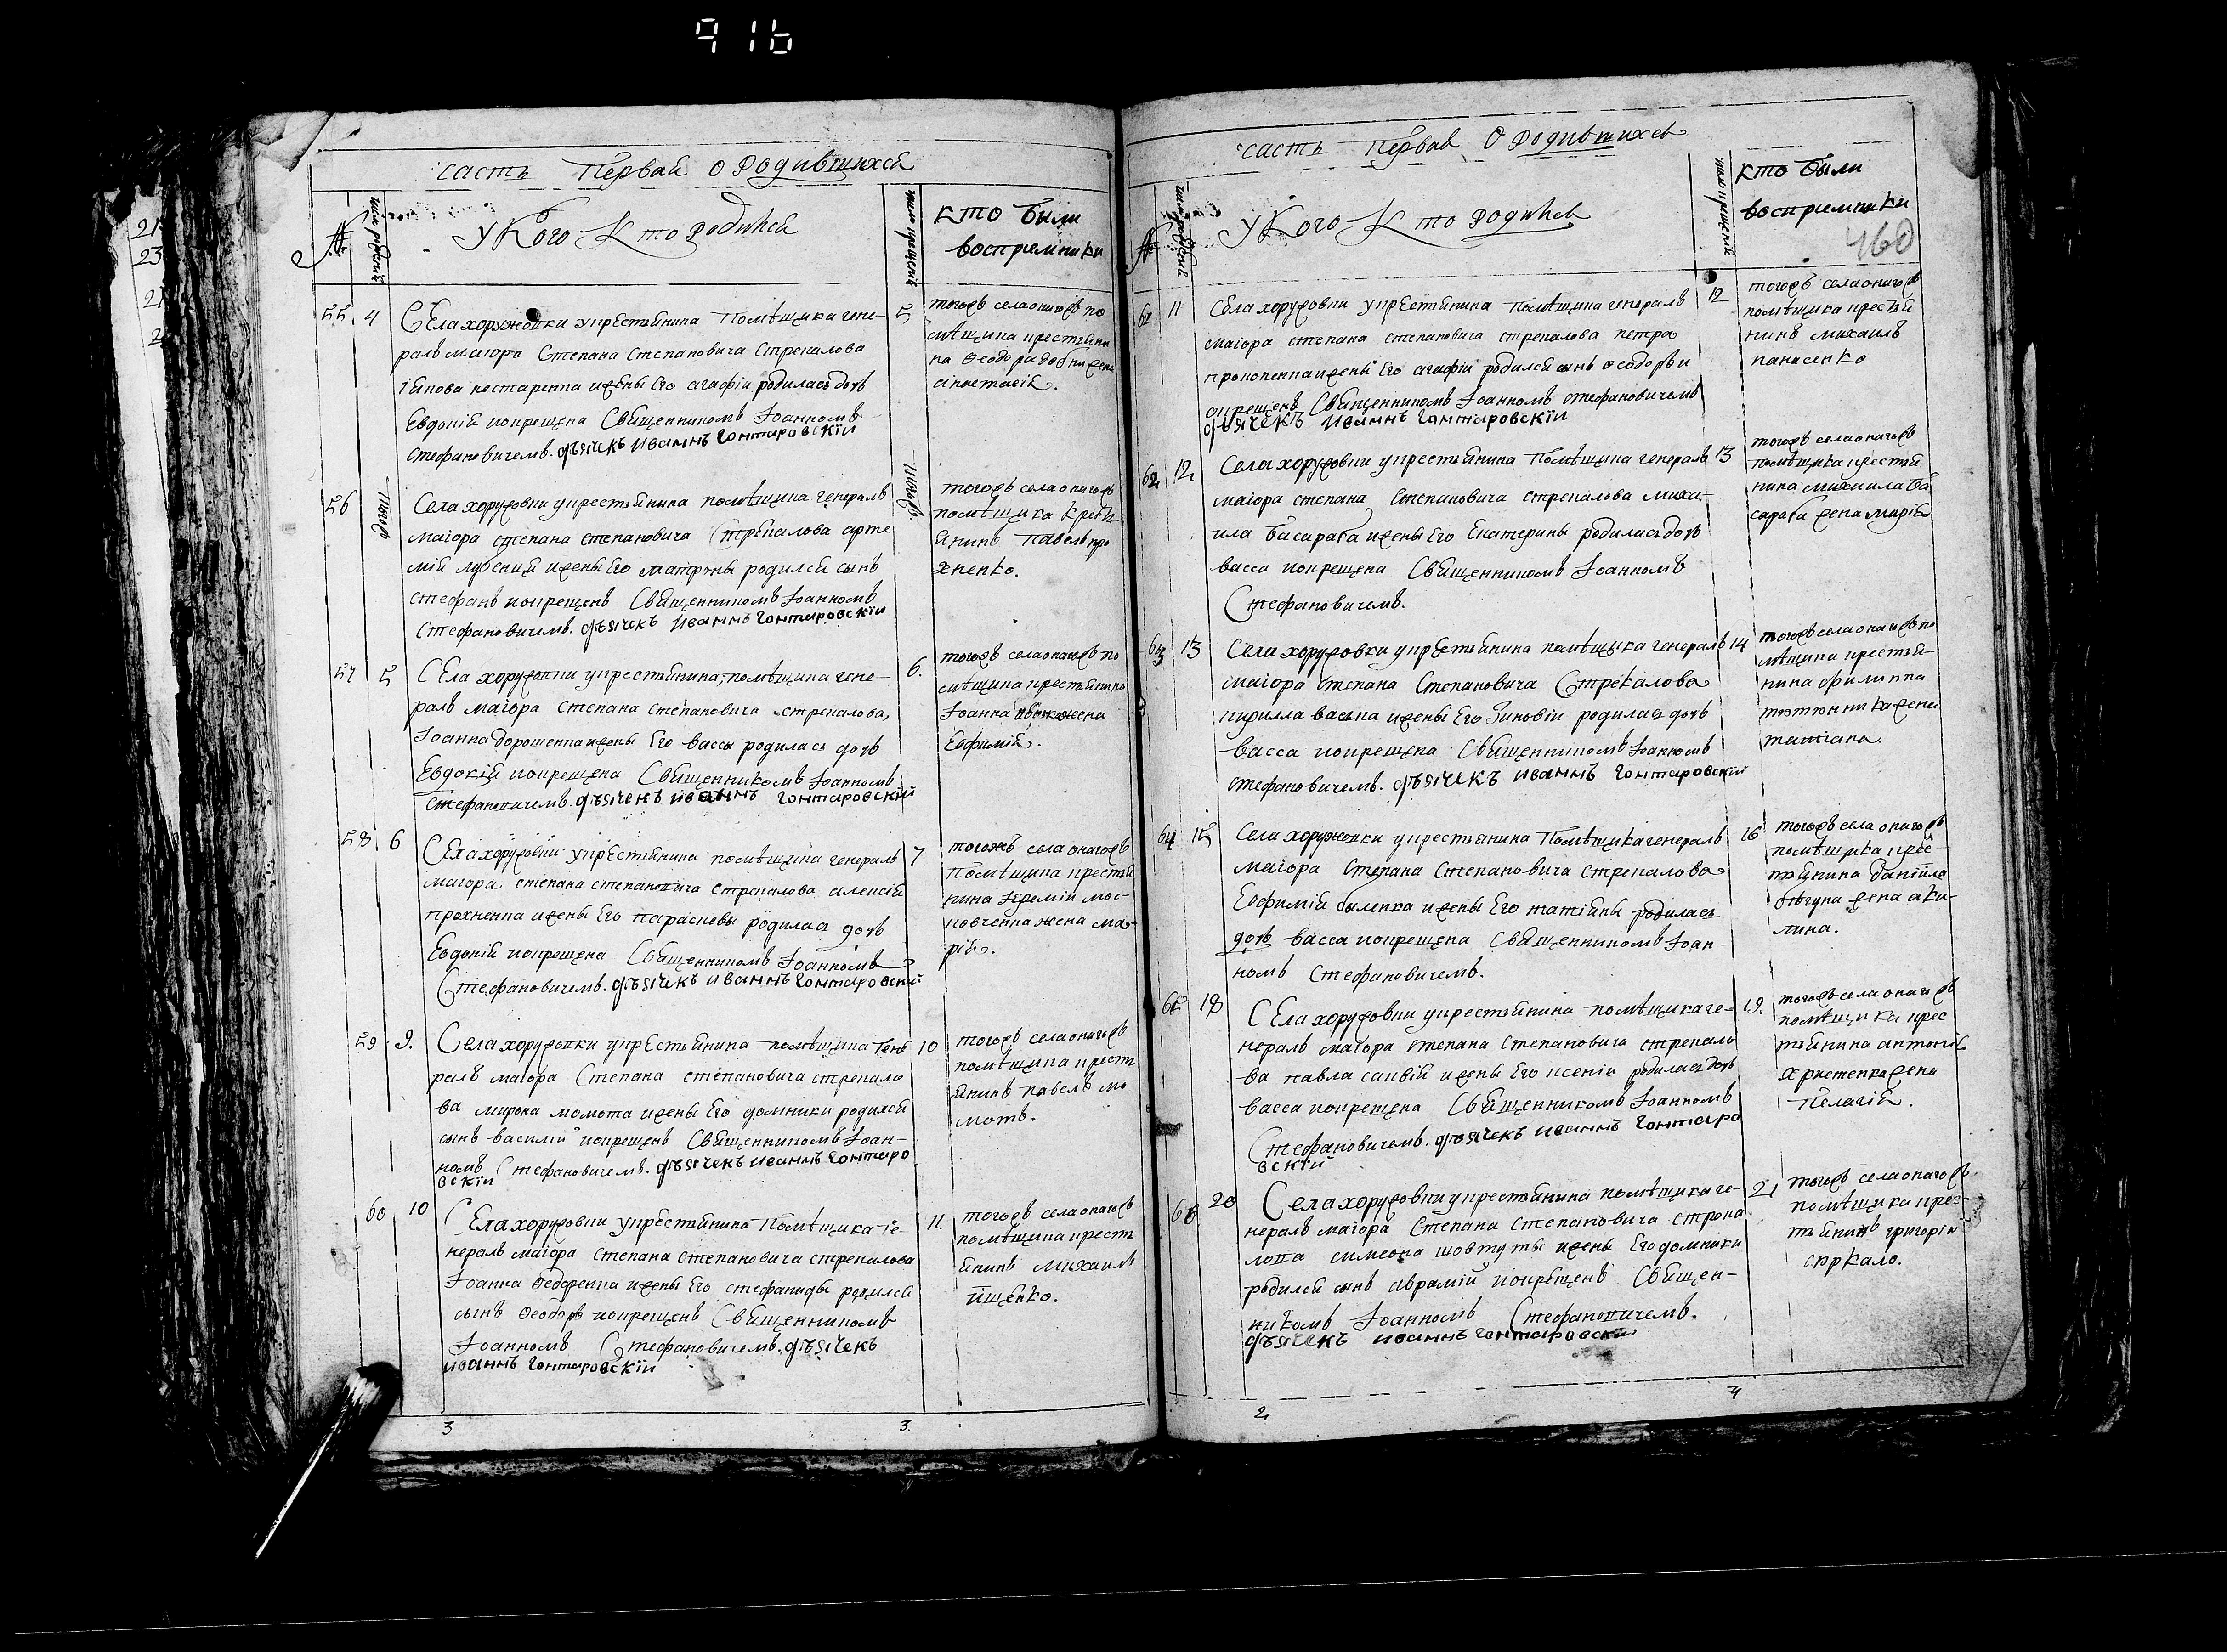 916
часть Первая О Родившихся
№ число рождения У Кого Кто родился число крещения кто были
восприемники
55 4 Села хоружовки у крестьянина Помѣщика гене-
ралъ маиора Степана Степановича Стрекалова
нестаренка и жены Его агафіи родилась дочь
Евдокия и окрещена Священникомъ Иоанномъ
Стефановичемъ. дьячекъ Иваннъ Гонтаровскіи
5 тогожъ села онагожъ по
мѣщика крестьяни
на Феодора жена
анастасія.
56 тогож Села хоружовки у крестьянина помѣщика генералъ
маиора степана степановича Стрекалова арте
мия и жены Его матроны родился сынъ
стефанъ и окрещенъ Священникомъ Иоанномъ
Стефановичемъ. дьячекъ Иваннъ Гонтаровскіи
тогож тогожъ села онагожъ
помѣщика крестья
янинъ Павелъ про
хненко.
57 5 Села хоружовки у крестьянина помѣщика гене-
ралъ маиора Степана степановича стрекалова,
Иоанна дорошенка и жены Его вассы родилась дочь
Евдокия и окрещена Священникомъ Иоанномъ
Стефановичемъ. дьячекъ иваннъ гонтаровскій
6. тогожъ села онагожъ по
мѣщика крестьянина
Иоанна жена
Евфимия.
58 6 Села хоружовки у крестьянина помѣщика генералъ
маиора степана степановича Стрекалова алексия
прохненка и жены Его параскевы родилась дочь
Евдокия и окрещена Священникомъ Иоанномъ
Стефановичемъ. дьячекъ иваннъ гонтаровскій
7 тогожъ села онагожъ
Помѣщика крестья
нина Еремии мос-
ковченка жена ма-
рия.
59 9. Села хоружовки у крестьянина помѣщика гене
ралъ маиора Степана степановича стрекало
ва мирона момота и жены Его домники родился
сынъ василий и окрещенъ Священникомъ Иоан-
номъ Стефановичемъ. дьячекъ иваннъ Гонтаро
вскіи
10 тогожъ села онагожъ
помѣщика кресть
янинъ павелъ мо
мотъ.
60 10 Села хоружовки у крестьянина Помѣщика ге-
нералъ маиора степана степановича стрекалова
Иоанна федоренка и жены Его стефаниды родился
сынъ Феодоръ и окрещенъ Священникомъ
Иоанномъ Стефановичемъ. дьячекъ
иваннъ гонтаровскіи
11. тогожъ села онагожъ
помѣщика кресть
янинъ Михаилъ
ищенко.
3 3.
часть первая О Родившихся
№ число рождения У Кого Кто родился число крещения кто были
восприемники
460
61 11 Села хоружовки у крестьянина Помѣщика генералъ
маиора степана степановича стрекалова петра
прокопенка и жены Его агафіи родился сынъ феодоръ и
окрещенъ Священникомъ Иоанномъ стефановичемъ
дьячекъ Иваннъ Гонтаровскіи
12 тогожъ села онагожъ
помѣщика крестья
нинъ михаилъ
панасенко
62 12 Села хоружовки у крестьянина Помѣщика генералъ
маиора степана Степановича стрекалова миха-
ила басараба и жены Его Екатерины родилась дочь
васса и окрещена Священникомъ Иоанномъ
Стефановичемъ.
13 тогожъ села онагожъ
помѣщика крестья
нина михаила ба
сараба жена мария
63 13 Села хоружовки у крестьянина помѣщика генералъ
маиора степана Степановича Стрекалова
кирилла васька и жены Его Зиновіи родилась дочь
васса и окрещена Священникомъ Иоанномъ
стефановичемъ. дьячекъ иваннъ Гонтаровскій
14 тогожъ села онагожъ по
мѣщика крестья-
нина филиппа
тютюнника жена
татиана.
64 15 Села хоружовки у крестьянина Помѣщика генералъ
маиора Степана Степановича стрекалова
Евфимия и жены Его татияны родилась
дочь васса и окрещена Священникомъ Иоан-
номъ Стефановичемъ.
16 тогожъ села онагожъ
помѣщика крес
тьянина даниила
бѣгуна жена аки-
лина.
65 18 Села хоружовки у крестьянина помѣщика ге-
нералъ маиора степана Степановича стрекало
ва павла и жены Его ксении родилась дочь
васса и окрещена Священникомъ Иоанномъ
Стефановичемъ. дьячекъ иваннъ Гонтаро
вскіи
19. тогожъ села онагожъ
помѣщика крес
тьянина антония
христенка жена
Пелагия.
66 20 Села хоружовки у крестьянина помѣщика ге-
нералъ маиора Степана Степановича стрека
лова симеона шовтуты и жены Его домники
родился сынъ аврамий и окрещенъ Священ-
никомъ Иоанномъ Стефановичемъ.
дьячекъ иваннъ гонтаровскіи
21 тогожъ села онагожъ
помѣщика крес-
тьянинъ григории
сюркало.
2 4